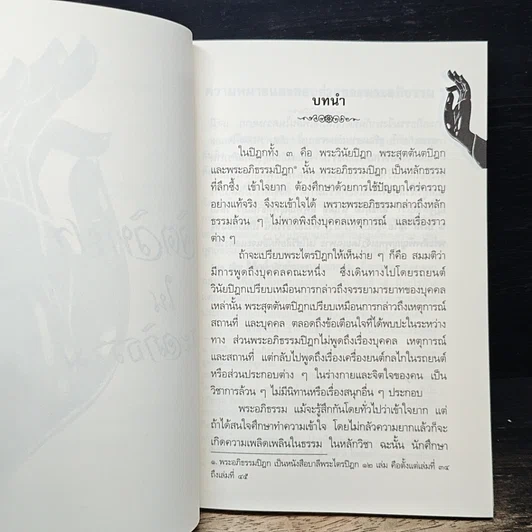 บทนำ
ในปิฎกทั้ง ๓ คือ พระวินัยปิฎก พระสุตตันตปิฎก
และพระอภิธรรมปิฎก๑ นั้น พระอภิธรรมปิฎก เป็นหลักธรรม
ที่ลึกซึ้ง เข้าใจยาก ต้องศึกษาด้วยการใช้ปัญญาใคร่ครวญ
อย่างแท้จริง จึงจะเข้าใจได้ เพราะพระอภิธรรมกล่าวถึงหลัก
ธรรมล้วน ๆ ไม่พาดพิงถึงบุคคลเหตุการณ์ และเรื่องราว
ต่าง ๆ
ถ้าจะเปรียบพระไตรปิฎกให้เห็นง่าย ๆ ก็คือ สมมติว่า
มีการพูดถึงบุคคลคณะหนึ่ง ซึ่งเดินทางไปโดยรถยนต์
วินัยปิฎกเปรียบเหมือนการกล่าวถึงจรรยามารยาทของบุคคล
เหล่านั้น พระสุตตันตปิฎกเปรียบเหมือนการกล่าวถึงเหตุการณ์
สถานที่ และบุคคล ตลอดถึงข้อเตือนใจที่ได้พบปะในระหว่าง
ทาง ส่วนพระอภิธรรมปิฎกไม่พูดถึงเรื่องบุคคล เหตุการณ์
และสถานที่ แต่กลับไปพูดถึงเรื่องเครื่องยนต์กลไกในรถยนต์
หรือส่วนประกอบต่าง ๆ ในร่างกายและจิตใจของคน เป็น
วิชาการล้วน ๆ ไม่มีนิทานหรือเรื่องสนุกอื่น ๆ ประกอบ
พระอภิธรรม แม้จะรู้สึกกันโดยทั่วไปว่าเข้าใจยาก แต่
ถ้าได้สนใจศึกษาทำความเข้าใจ โดยไม่กลัวความยากแล้วก็จะ
เกิดความเพลิดเพลินในธรรม ในหลักวิชา ฉะนั้น นักศึกษา
๑. พระอภิธรรมปิฎก เป็นหนังสือบาลีพระไตรปิฎก ๑๒ เล่ม คือตั้งแต่เล่มที่ ๓๔
ถึงเล่มที่ ๔๕